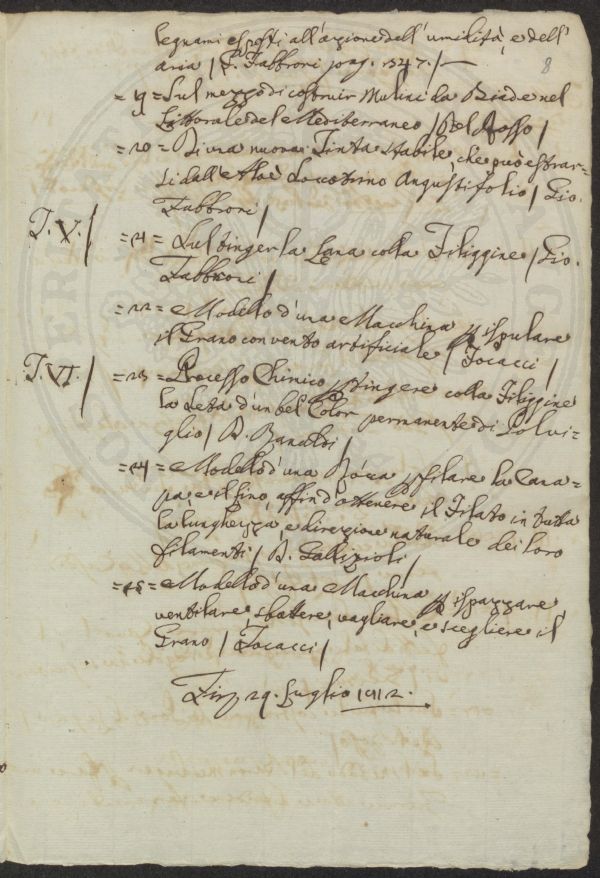 legnami esposti all'azione dell'umidità, e dell'
aria / G. Fabbroni pag. 1347. / —
8
= 19 = Sul mezzo di costruir Mulini da Biade nel
Littorale del Mediterraneo / Del Rosso /
= 20 = Di una nuova Tinta stabile, che può estrar=
si dall'Aloè Soccotrino Angustifolio / Gio.
Fabbroni /
T. V. /
= 21 = Sul tinger la Lana colla Filiggine / Gio.
Fabbroni /
= 22 = Modello d'una Macchina p ispulare
il Grano con vento artificiale / Tocacci /
T. VI. /
= 23 = Processo Chimico p tingere colla Filiggine
la Seta d'un bel Color permanente di Solvi=
glio / A. Banaldi /
= 24 = Modello d'una Roca p filare la Cana=
pa, e il lino, affin d'ottenere il Filato in tutta
la lunghezza, e direzione naturale dei loro
filamenti / A. Gallizioli /
= 25 = Modello d'una Macchina p ispazzare,
ventilare, sbattere, vagliare, e scegliere il
Grano / Tocacci /
Firz 29. Luglio 1812.